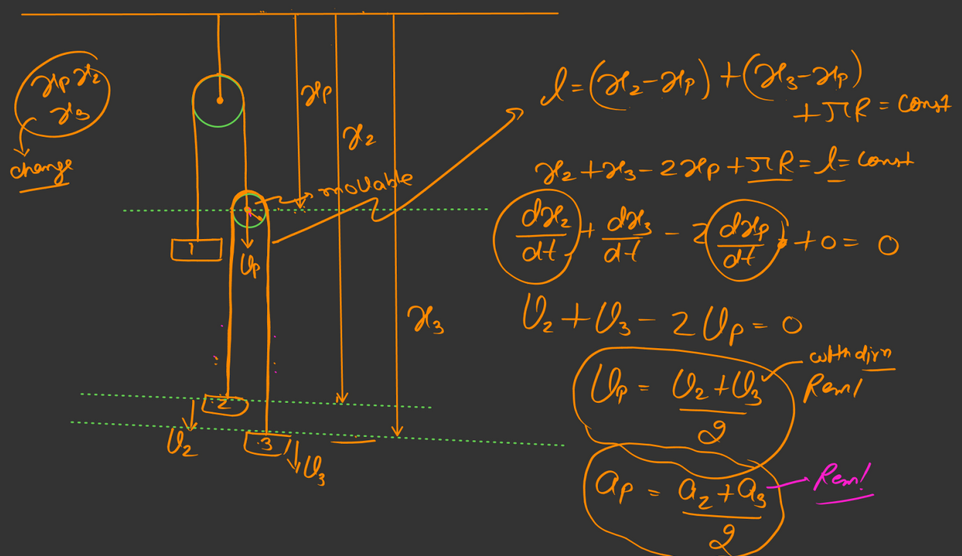 xₚ x₂
x₃
change
xₚ
x₂
x₃
movable
1
vₚ
2
3
v₂
v₃
l = (x₂ - xₚ) + (x₃ - xₚ)
+ πR = const
x₂ + x₃ - 2xₚ + πR = l = const
dx₂/dt + dx₃/dt - 2 dxₚ/dt + 0 = 0
v₂ + v₃ - 2vₚ = 0
vₚ = (v₂ + v₃)/2
with dirn
Rem!
aₚ = (a₂ + a₃)/2
Rem!